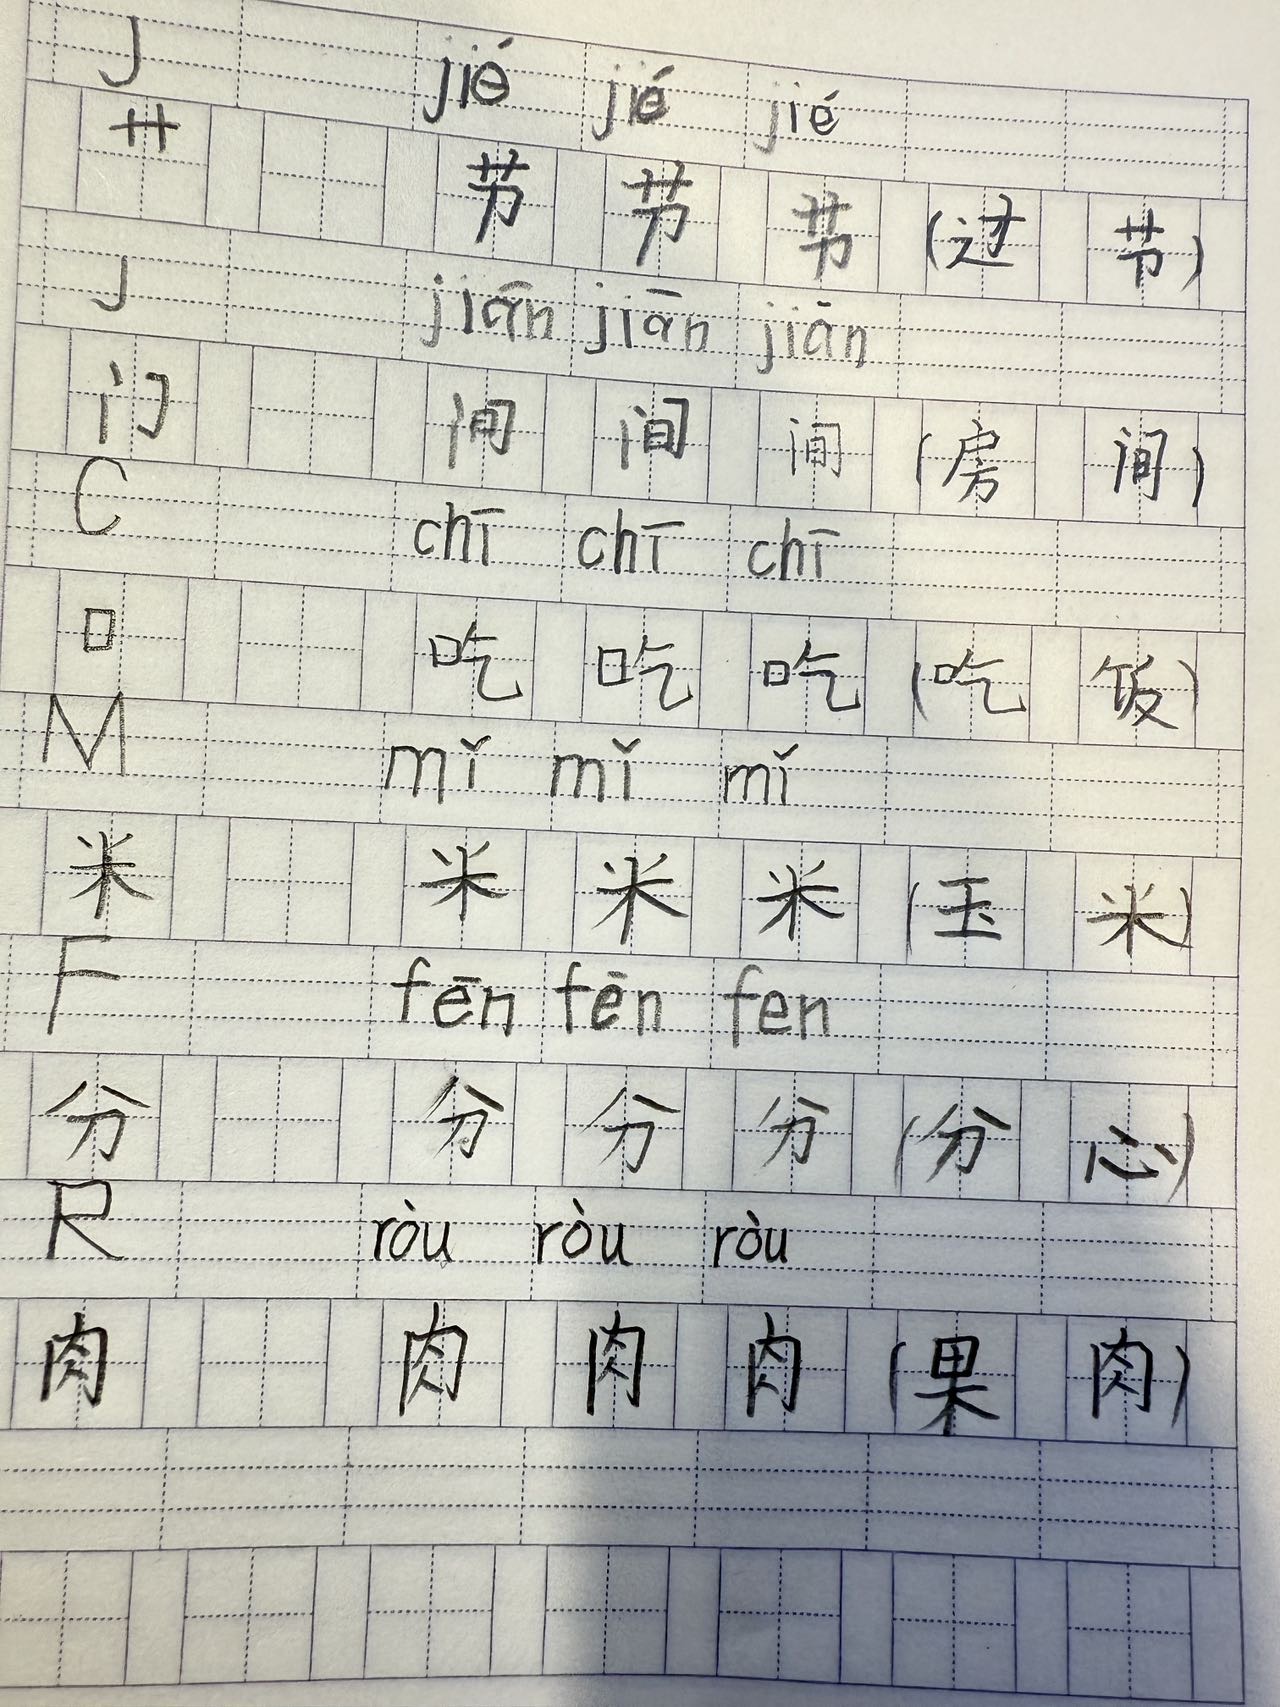 J jié jié jié
艹 节 节 节 (过 节)
J jiān jiān jiān
门 间 间 间 (房 间)
C chī chī chī
口 吃 吃 吃 (吃 饭)
M mǐ mǐ mǐ
米 米 米 米 (玉 米)
F fēn fēn fen
分 分 分 分 (分 心)
R ròu ròu ròu
肉 肉 肉 肉 (果 肉)